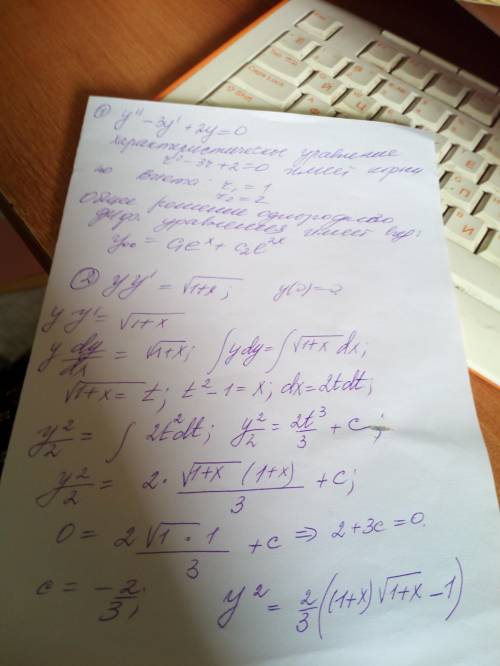 ① y'' - 3y' + 2y = 0
характеристическое уравнение
r² - 3r + 2 = 0 имеет корни
по Виета: r₁ = 1
r₂ = 2
Общее решение однородного
диф. уравнения имеет вид:
yₒₒ = C₁eˣ + C₂e²ˣ
② y y' = √(1+x); y(0) = 2
y y' = √(1+x)
y dy/dx = √(1+x); ∫ y dy = ∫ √(1+x) dx;
√(1+x) = t; t² - 1 = x; dx = 2t dt;
y²/2 = ∫ 2t² dt; y²/2 = 2t³/3 + C;
y²/2 = 2 · √(1+x) (1+x)/3 + C;
0 = 2√1 · 1/3 + C ⇒ 2 + 3C = 0.
C = -2/3; y² = 2/3 ((1+x)√(1+x) - 1)